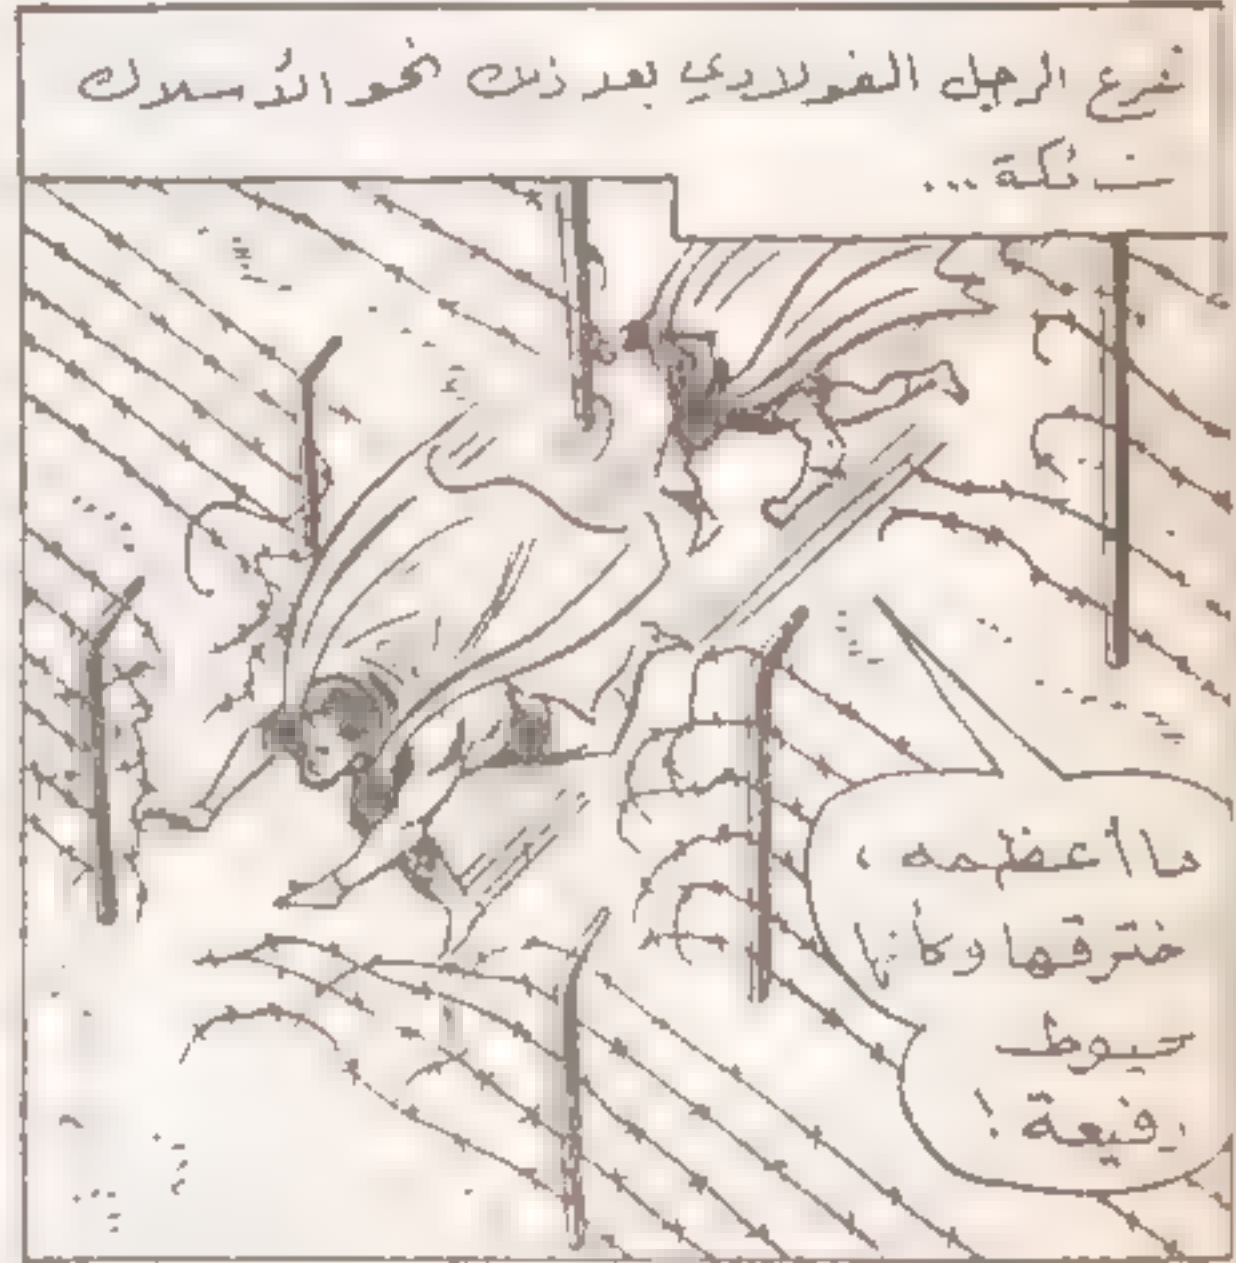 فرع الرجل الفولاذي بعد ذلك نحو الأسلاك
ـئكة...
ما أعظمه ،
خترقها وكأنها
ـيوط
رفيعة !